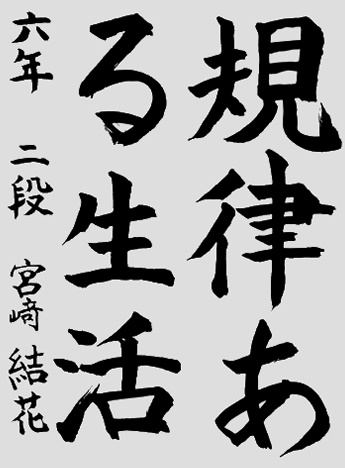 規律あ
る生活
六年 二段 宮﨑 結花